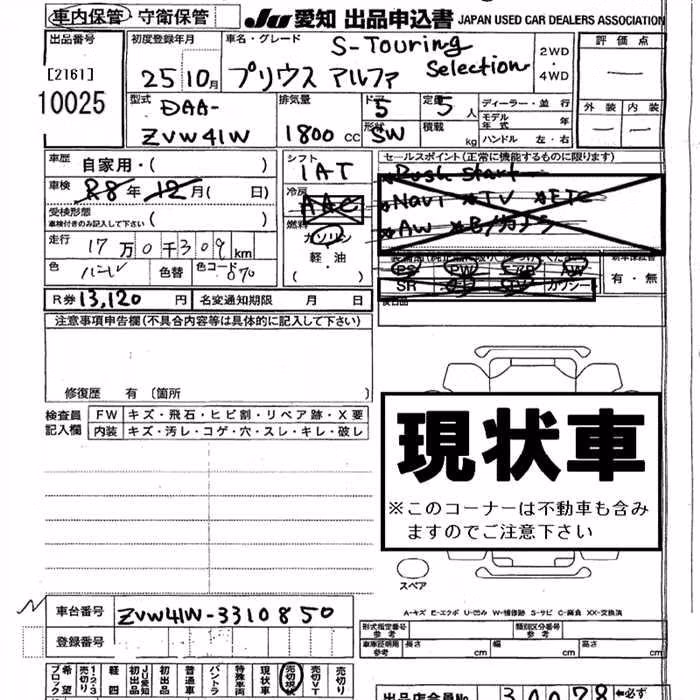 車内保管・守衛保管 JU 愛知 出品申込書 JAPAN USED CAR DEALERS ASSOCIATION
出品番号 初度登録年月 車名・グレード S-Touring 2WD 評価点
[2161] 25 10月 プリウス アルファ Selection ・4WD —
10025 型式 DAA- 排気量 ドア 5 定員 5人 ディーラー・並行 外装 内装
ZVW41W 1800cc 形状 SW 積載 kg モデル年式 年 — —
ハンドル 左・右
車歴 自家用・( ) シフト IAT セールスポイント(正常に機能するものに限ります)
車検 R8年 12月( 日) 冷房 AAC Push Start
Navi TV ETC
受検形態 車検付きのみ記入して下さい ( ) 燃料 AW Bカメラ
走行 17万0千309km ガソリン
軽・油
色 パール 色替 色コード 070 ( ) PS PW AW 有・無
R券 13,120円 名変通知期限 月 日 SR カワシート
注意事項申告欄(不具合内容等は具体的に記入して下さい)
修復歴 有 〔箇所 〕
検査員 FW キズ・飛石・ヒビ割・リペア跡・X要
記入欄 内装 キズ・汚レ・コゲ・穴・スレ・キレ・破レ
現状車
※このコーナーは不動車も含み
ますのでご注意下さい
スペア
A-キズ E-エクボ U-凹み W-補修跡 S-サビ C-腐食 XX-交換済
車台番号 ZVW41W-3310850
登録番号
形式指定番号 参考 類別区分番号 参考
車庫証明用 参考 長さ cm 幅 cm 高さ cm
希望ブロック 1・2・3 売切り 軽四 JU愛知初出品 初出品 普通車 バントラ 特殊車両 現状車 売切現状 売切VT 売切り
出品店会員No. 30078 ←必ず